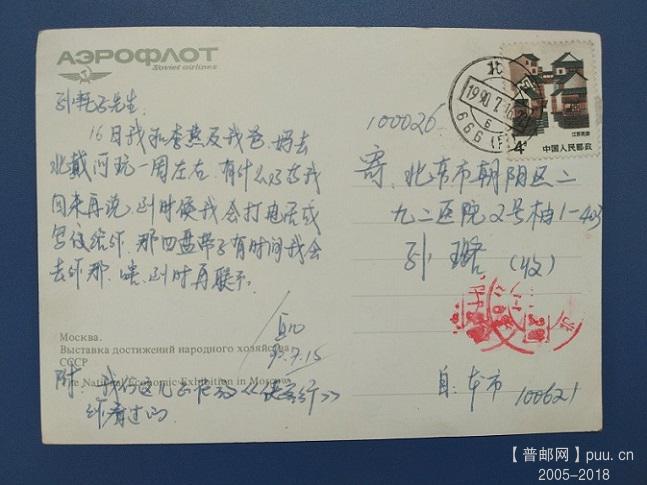 АЭРОФЛОТ
Soviet airlines
孙耗子先生
16日我和李燕及我爸、妈去
北戴河玩一周左右,有什么好事我
回来再说,到时侯我会打电话或
写信给你,那四盘带子有时间我会
去你那,嘻,到时再联系.
90.7.15
Москва.
Выставка достижений народного хозяйства
СССР
The National Economic Exhibition in Moscow
附 我们这儿正在放《侠客行》
你看过吗
北
1990.7.16
6
666
4
中国人民邮政
100026
寄:北京市朝阳区二
九二医院2号楠1-403
孙 璐 (收)
自:本市 100621
【普邮网】puu.cn
2005-2018